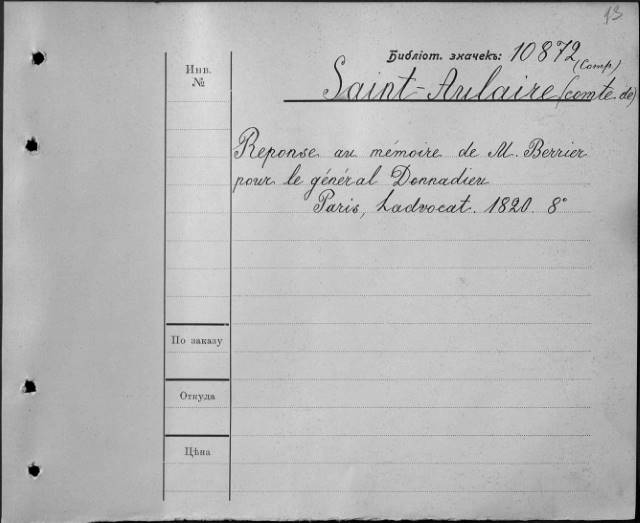 13
Библіот. значекъ: 10872
(Comp)
Инв. №
Saint-Aulaire (comte de)
Reponse au mémoire de M. Berrier
pour le général Donnadieu
Paris, Ladvocat. 1820. 8°
По заказу
Откуда
Цѣна